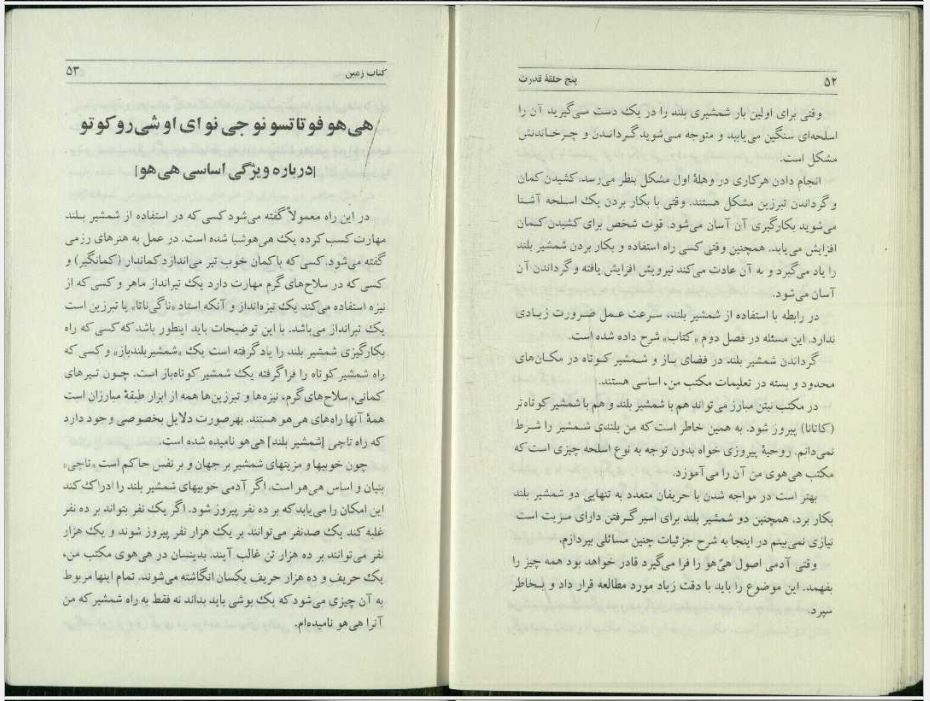 ۵۲
پنج حلقهٔ قدرت
وقتی برای اولین بار شمشیری بلند را در یک دست می‌گیرید آن را
اسلحه‌ای سنگین می‌یابید و متوجه می‌شوید گردانـدن و چـرخـاندنش
مشکل است.
انجام دادن هرکاری در وهلهٔ اول مشکل بنظر می‌رسد. کشیدن کمان
و گرداندن تبرزین مشکل هستند. وقتی با بکار بردن یک اسـلحه آشـنا
می‌شوید بکارگیری آن آسان می‌شود. قوت شخص برای کشیدن کـمان
افزایش می‌یابد. همچنین وقتی کسی راه استفاده و بکار بردن شمشیر بلند
را یاد می‌گیرد و به آن عادت می‌کند نیرویش افزایش یافته و گرداندن آن
آسان می‌شود.
در رابطه با استفاده از شمشیر بلند، سـرعت عـمل ضـرورت زیـادی
ندارد. این مسئله در فصل دوم «کتاب» شرح داده شده است.
گرداندن شمشیر بلند در فضای بـاز و شـمشیر کـوتاه در مکـان‌های
محدود و بسته در تعلیمات مکتب من، اساسی هستند.
در مکتب نیتن مبارز می‌تواند هم با شمشیر بلند و هم با شمشیر کوتاه‌تر
(کاتانا) پیروز شود. به همین خاطر است که من بلندی شـمشیر را شـرط
نمی‌دانم. روحیهٔ پیروزی خواه بدون توجه به نوع اسلحه چیزی است که
مکتب هی‌هوی من آن را می‌آموزد.
بهتر است در مواجه شدن با حریفان متعدد به تنهایی دو شمشیر بلند
بکار برد. همچنین دو شمشیر بلند برای اسیر گـرفتن دارای مـزیت است
نیازی نمی‌بینم در اینجا به شرح جزئیات چنین مسائلی بپردازم.
وقتی آدمی اصول هی‌هو را فرا می‌گیرد قادر خواهد بود همه چیز را
بفهمد. این موضوع را باید با دقت زیاد مورد مطالعه قرار داد و بـخاطر
سپرد.
کتاب زمین
۵۳
هی‌هو فوتاتسو نوجی نوای اوشی‌روکوتو
[درباره ویژگی اساسی هی‌هو]
در این راه معمولاً گفته می‌شود کسی که در استفاده از شمشیر بـلند
مهارت کسب کرده یک هی‌هوشیا شده است. در عمل به هنرهای رزمی
گفته می‌شود. کسی که با کمان خوب تیر می‌اندازد کماندار (کمانگیر) و
کسی که در سلاح‌های گرم مهارت دارد یک تیرانداز ماهر و کسی که از
نیزه استفاده می‌کند یک نیزه‌انداز و آنکه استاد «ناگی‌ناتا» یا تبرزین است
یک تبرانداز می‌باشد. با این توضیحات باید اینطور باشد که کسی که راه
بکارگیری شمشیر بلند را یاد گرفته است یک «شمشیربلندباز» و کسی که
راه شمشیر کوتاه را فرا گرفته یک شمشیر کوتاه‌باز است. چـون تـیرهای
کمانی، سلاح‌های گرم، نیزه‌ها و تبرزین‌ها همه از ابزار طبقهٔ مبارزان است
همهٔ آنها راه‌های هی‌هو هستند. بهرصورت دلایل بخصوصی وجود دارد
که راه تاچی [شمشیر بلند] هی‌هو نامیده شده است.
چون خوبیها و مزیتهای شمشیر بر جهان و بر نفس حاکم است «تاچی»
بنیان و اساس هی‌هو است. اگر آدمی خوبیهای شمشیر بلند را ادراک کند
این امکان را می‌یابد که بر ده نفر پیروز شود. اگر یک نفر بتواند بر ده نفر
غلبه کند یک صدنفر می‌توانند بر یک هزار نفر پیروز شوند و یک هزار
نفر می‌توانند بر ده هزار تن غالب آیند. بدینسان در هی‌هوی مکتب من،
یک حریف و ده هزار حریف یکسان انگاشته می‌شوند. تمام اینها مربوط
به آن چیزی می‌شود که یک بوشی باید بداند نه فقط به راه شمشیر که من
آنرا هی‌هو نامیده‌ام.